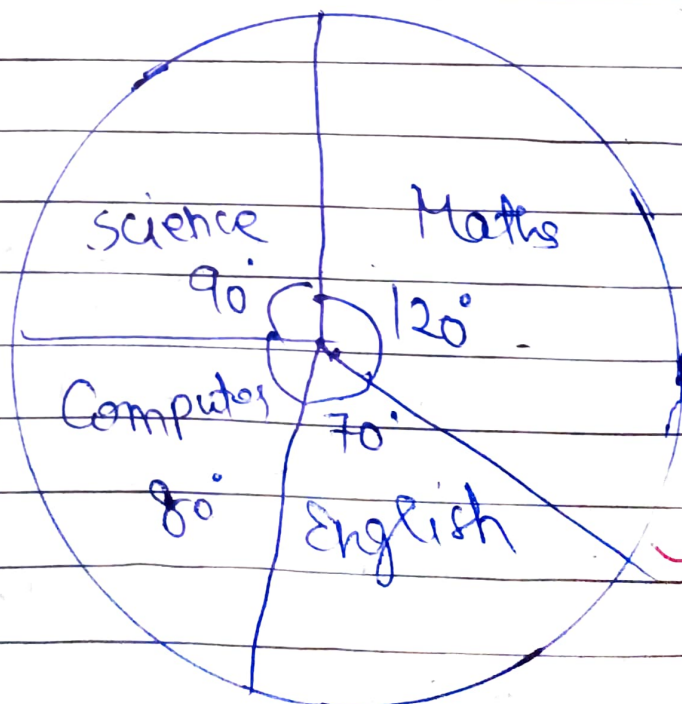 Science Maths
90° 120°
Computer 70°
80° English